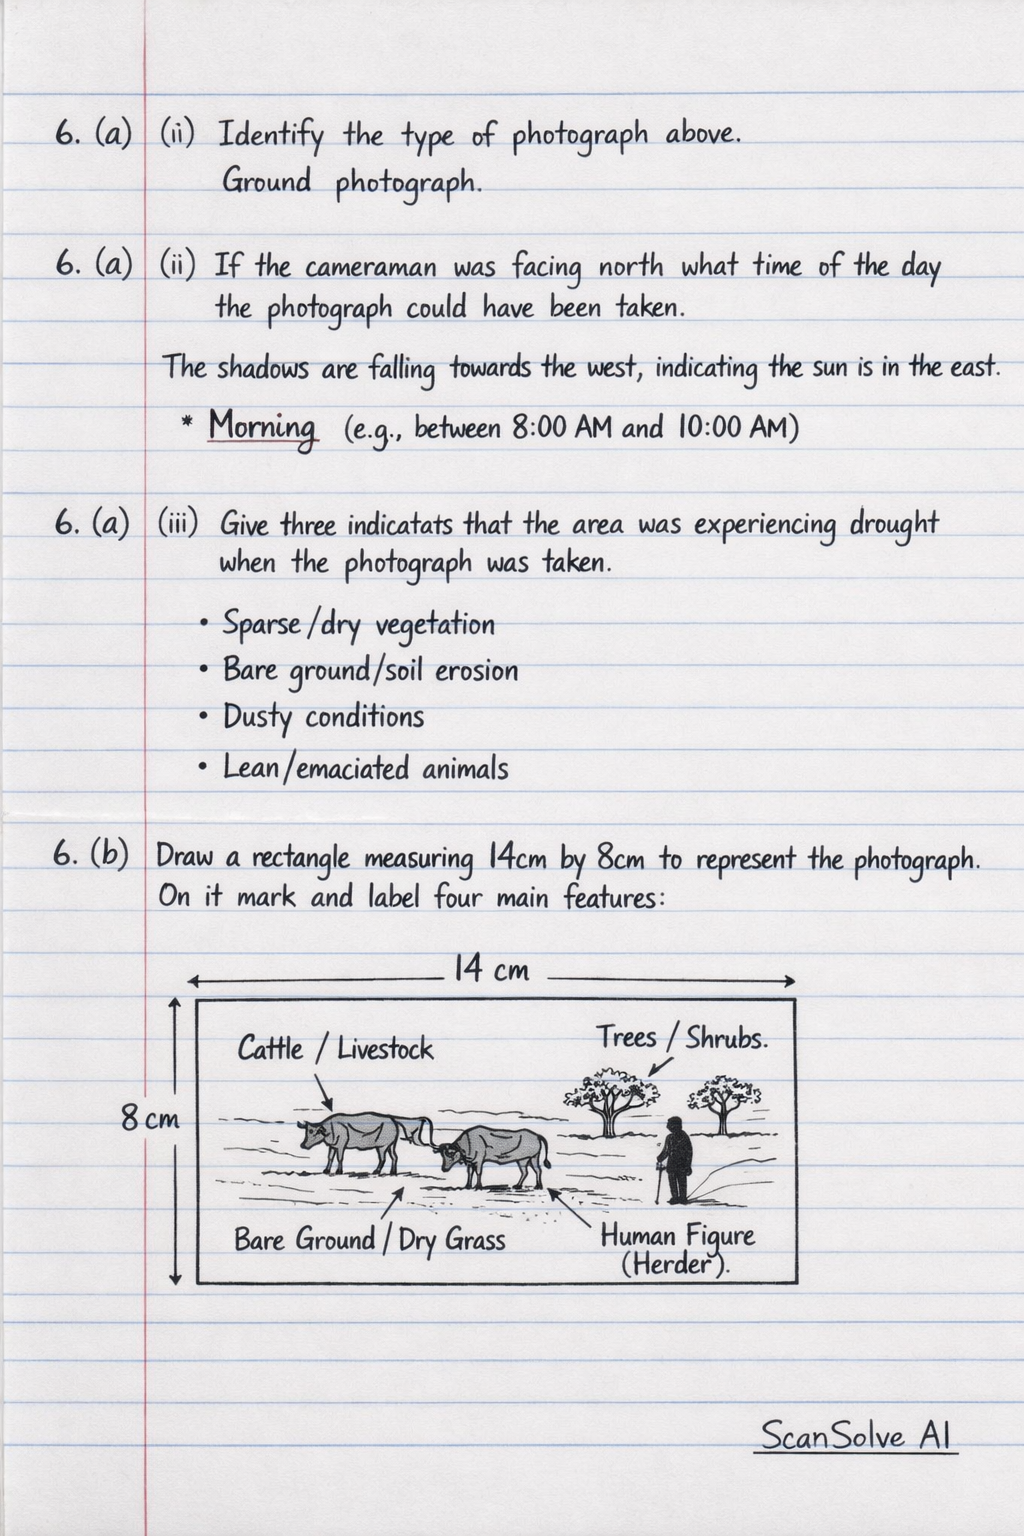 6. (a) (ii) Identify the type of photograph above.
Ground photograph.
6. (a) (ii) If the cameraman was facing north what time of the day
the photograph could have been taken.
The shadows are falling towards the west, indicating the sun is in the east.
* Morning (e.g., between 8:00 AM and 10:00 AM)
6. (a) (iii) Give three indicatats that the area was experiencing drought
when the photograph was taken.
• Sparse/dry vegetation
• Bare ground/soil erosion
• Dusty conditions
• Lean/emaciated animals
6. (b) Draw a rectangle measuring 14cm by 8cm to represent the photograph.
On it mark and label four main features:
14 cm
Cattle / Livestock
Trees / Shrubs.
8 cm
Bare Ground / Dry Grass
Human Figure
(Herder).
ScanSolve AI